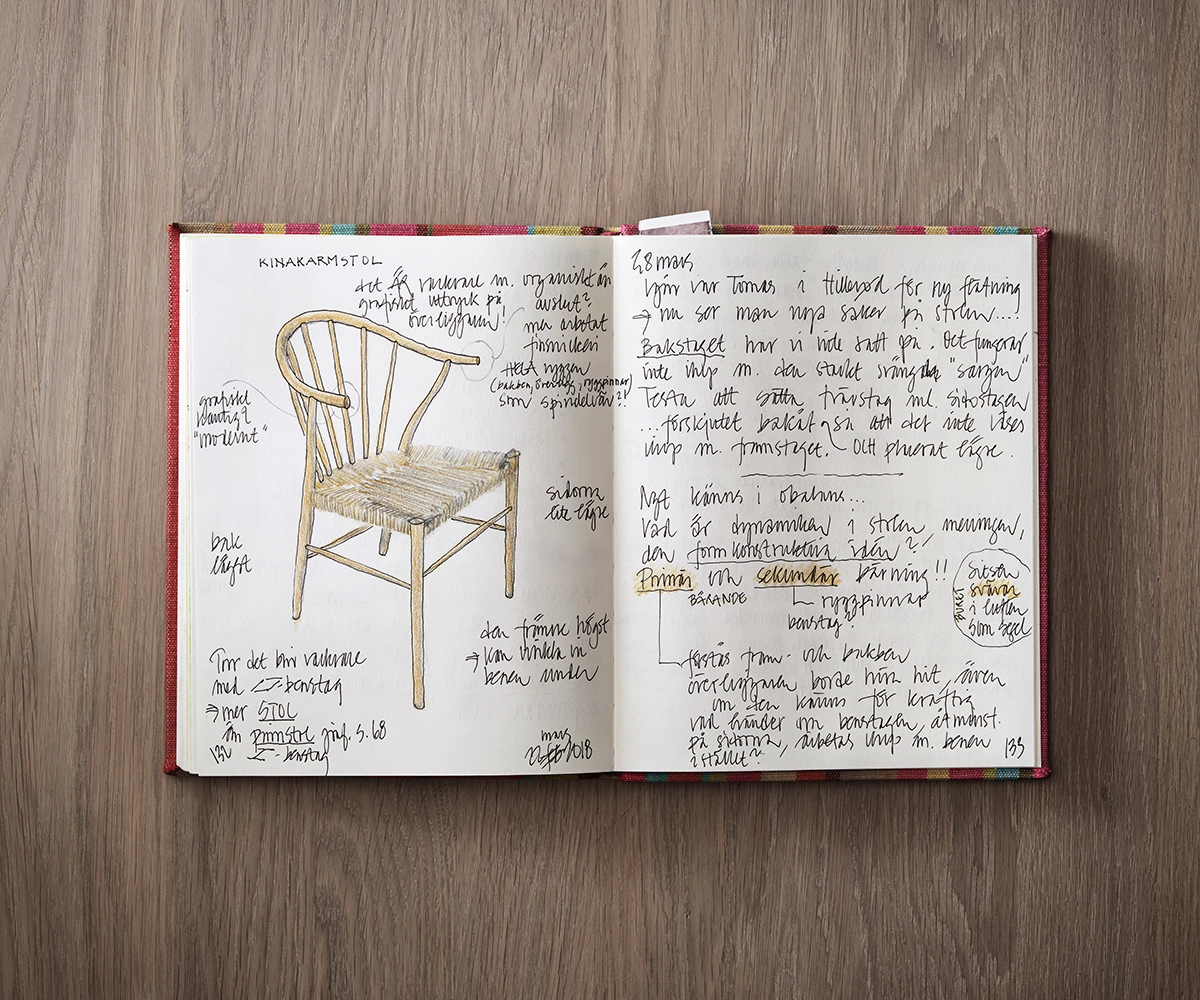 KINAKARMSTOL
det ÄR vackrare m. organiskt än
grafiskt uttryck på
överliggaren!
avslut?
mer arbetat
finsnickeri
HELA ryggen
(bakben, överligg, ryggpinnar)
som spindelväv?!
grafiskt
kantig?
"modernt"
sidorna
lite lägre
bak
lägst
den främre högst
⇒ kan vinkla in
benen under
Tror det blir vackrare
med benstag
⇒ mer STOL
än pinnstol jmf. s. 68
132
benstag
mars
2018
28 mars
Igår var Tomas i Hillerød för ny
⇒ nu ser man nya saker på stolen...!
Bakstaget har vi inte satt på. Det fungerar
inte ihop m. den starkt svängda "sargen"
Testa att sätta tvärstag ml. sidostagen
...förskjutet bakåt så att det inte läses
ihop m. framstaget. OCH placerat lägre.
Ngt känns i obalans...
Vad är dynamiken i stolen, meningen,
den formkonstruktiva idén?
Primär och sekundär bärning!!
BÄRANDE
ryggpinnar
benstag?
BURET
Sitsen
svävar
i luften
som segel
förstås fram- och bakben
överliggaren borde höra hit, även
om den känns för kraftig
vad händer om benstagen, åtminst.
på sidorna, arbetas ihop m. benen
istället?
133